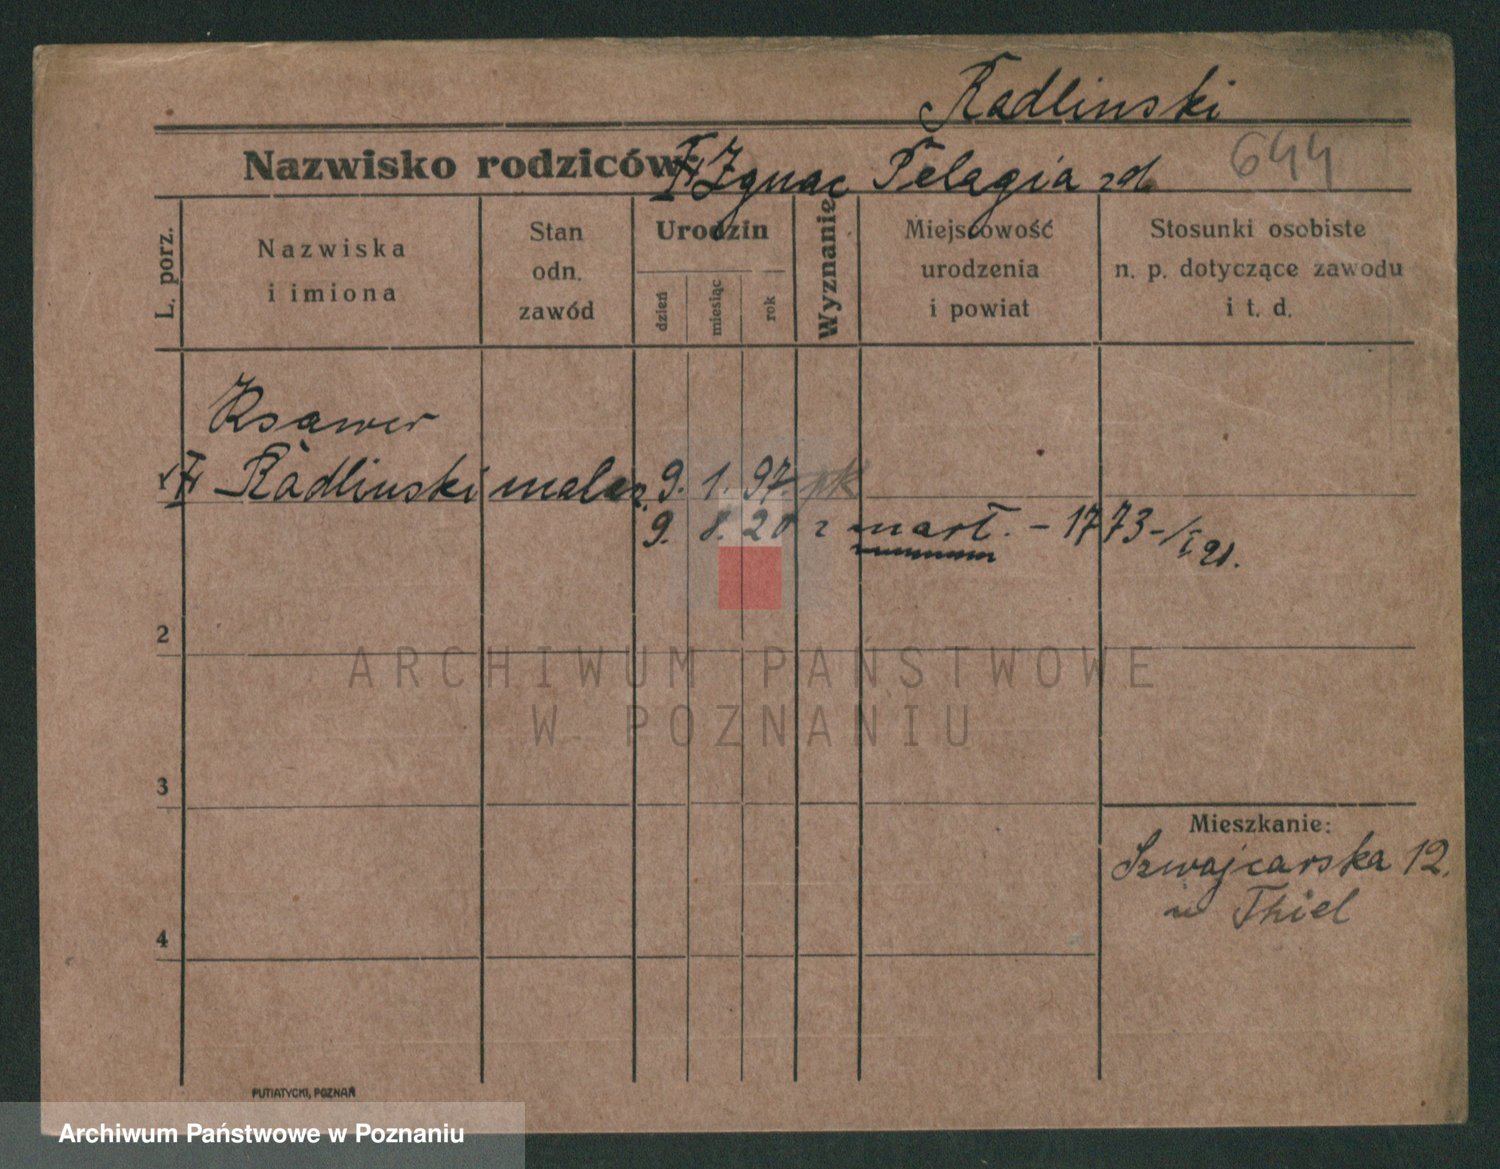 Radlinski
Nazwisko rodziców: Ignac Pelagia zd.
644
L. porz.
Nazwiska
i imiona
Stan
odn.
zawód
Urodzin
dzień
miesiąc
rok
Wyznanie
Miejscowość
urodzenia
i powiat
Stosunki osobiste
n. p. dotyczące zawodu
i t. d.
Ksawer
1 Radlinski malarz 9. 1. 97. rk
9. 8. 20 zmarł. - 1773-/I 21.
2
ARCHIWUM PAŃSTWOWE
W POZNANIU
3
Mieszkanie:
Szwajcarska 12.
u Thiel
4
PUTIATYCKI, POZNAŃ
Archiwum Państwowe w Poznaniu